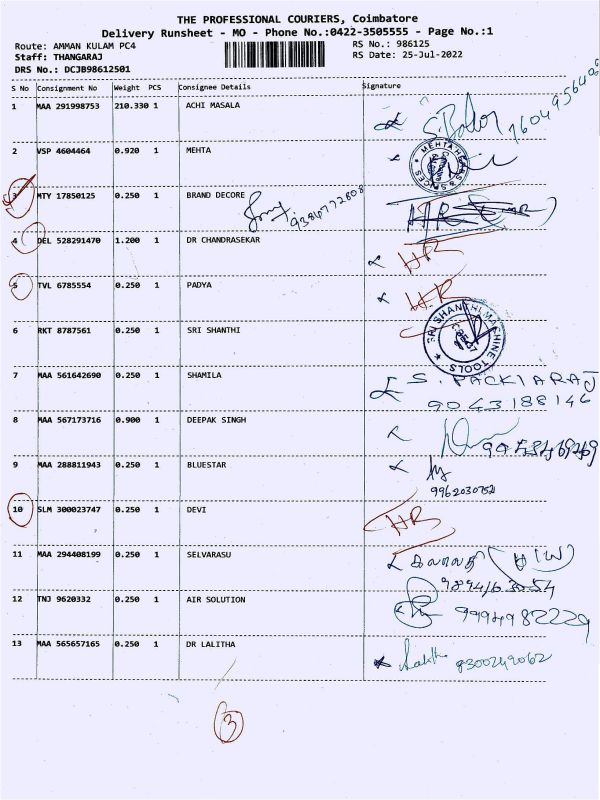 THE PROFESSIONAL COURIERS, Coimbatore
Delivery Runsheet - MO - Phone No.:0422-3505555 - Page No.:1
Route: AMMAN KULAM PC4 RS No.: 986125
Staff: THANGARAJ RS Date: 25-Jul-2022
DRS No.: DCJB98612501
S No Consignment No Weight PCS Consignee Details Signature
1 MAA 291998753 210.330 1 ACHI MASALA
2 VSP 4604464 0.920 1 MEHTA
3 MTY 17850125 0.250 1 BRAND DECORE 9384772808
4 DEL 528291470 1.200 1 DR CHANDRASEKAR HR
5 TVL 6785554 0.250 1 PADYA HR
6 RKT 8787561 0.250 1 SRI SHANTHI SRI SHANTHI MACHINE TOOLS
7 MAA 561642690 0.250 1 SHAMILA S. PACKIARAJ
9043188146
8 MAA 567173716 0.900 1 DEEPAK SINGH
9 MAA 288811943 0.250 1 BLUESTAR
9962030752
10 SLM 300023747 0.250 1 DEVI HR
11 MAA 294408199 0.250 1 SELVARASU
12 TNJ 9620332 0.250 1 AIR SOLUTION 9994982229
13 MAA 565657165 0.250 1 DR LALITHA Lalitha 9300242062
3